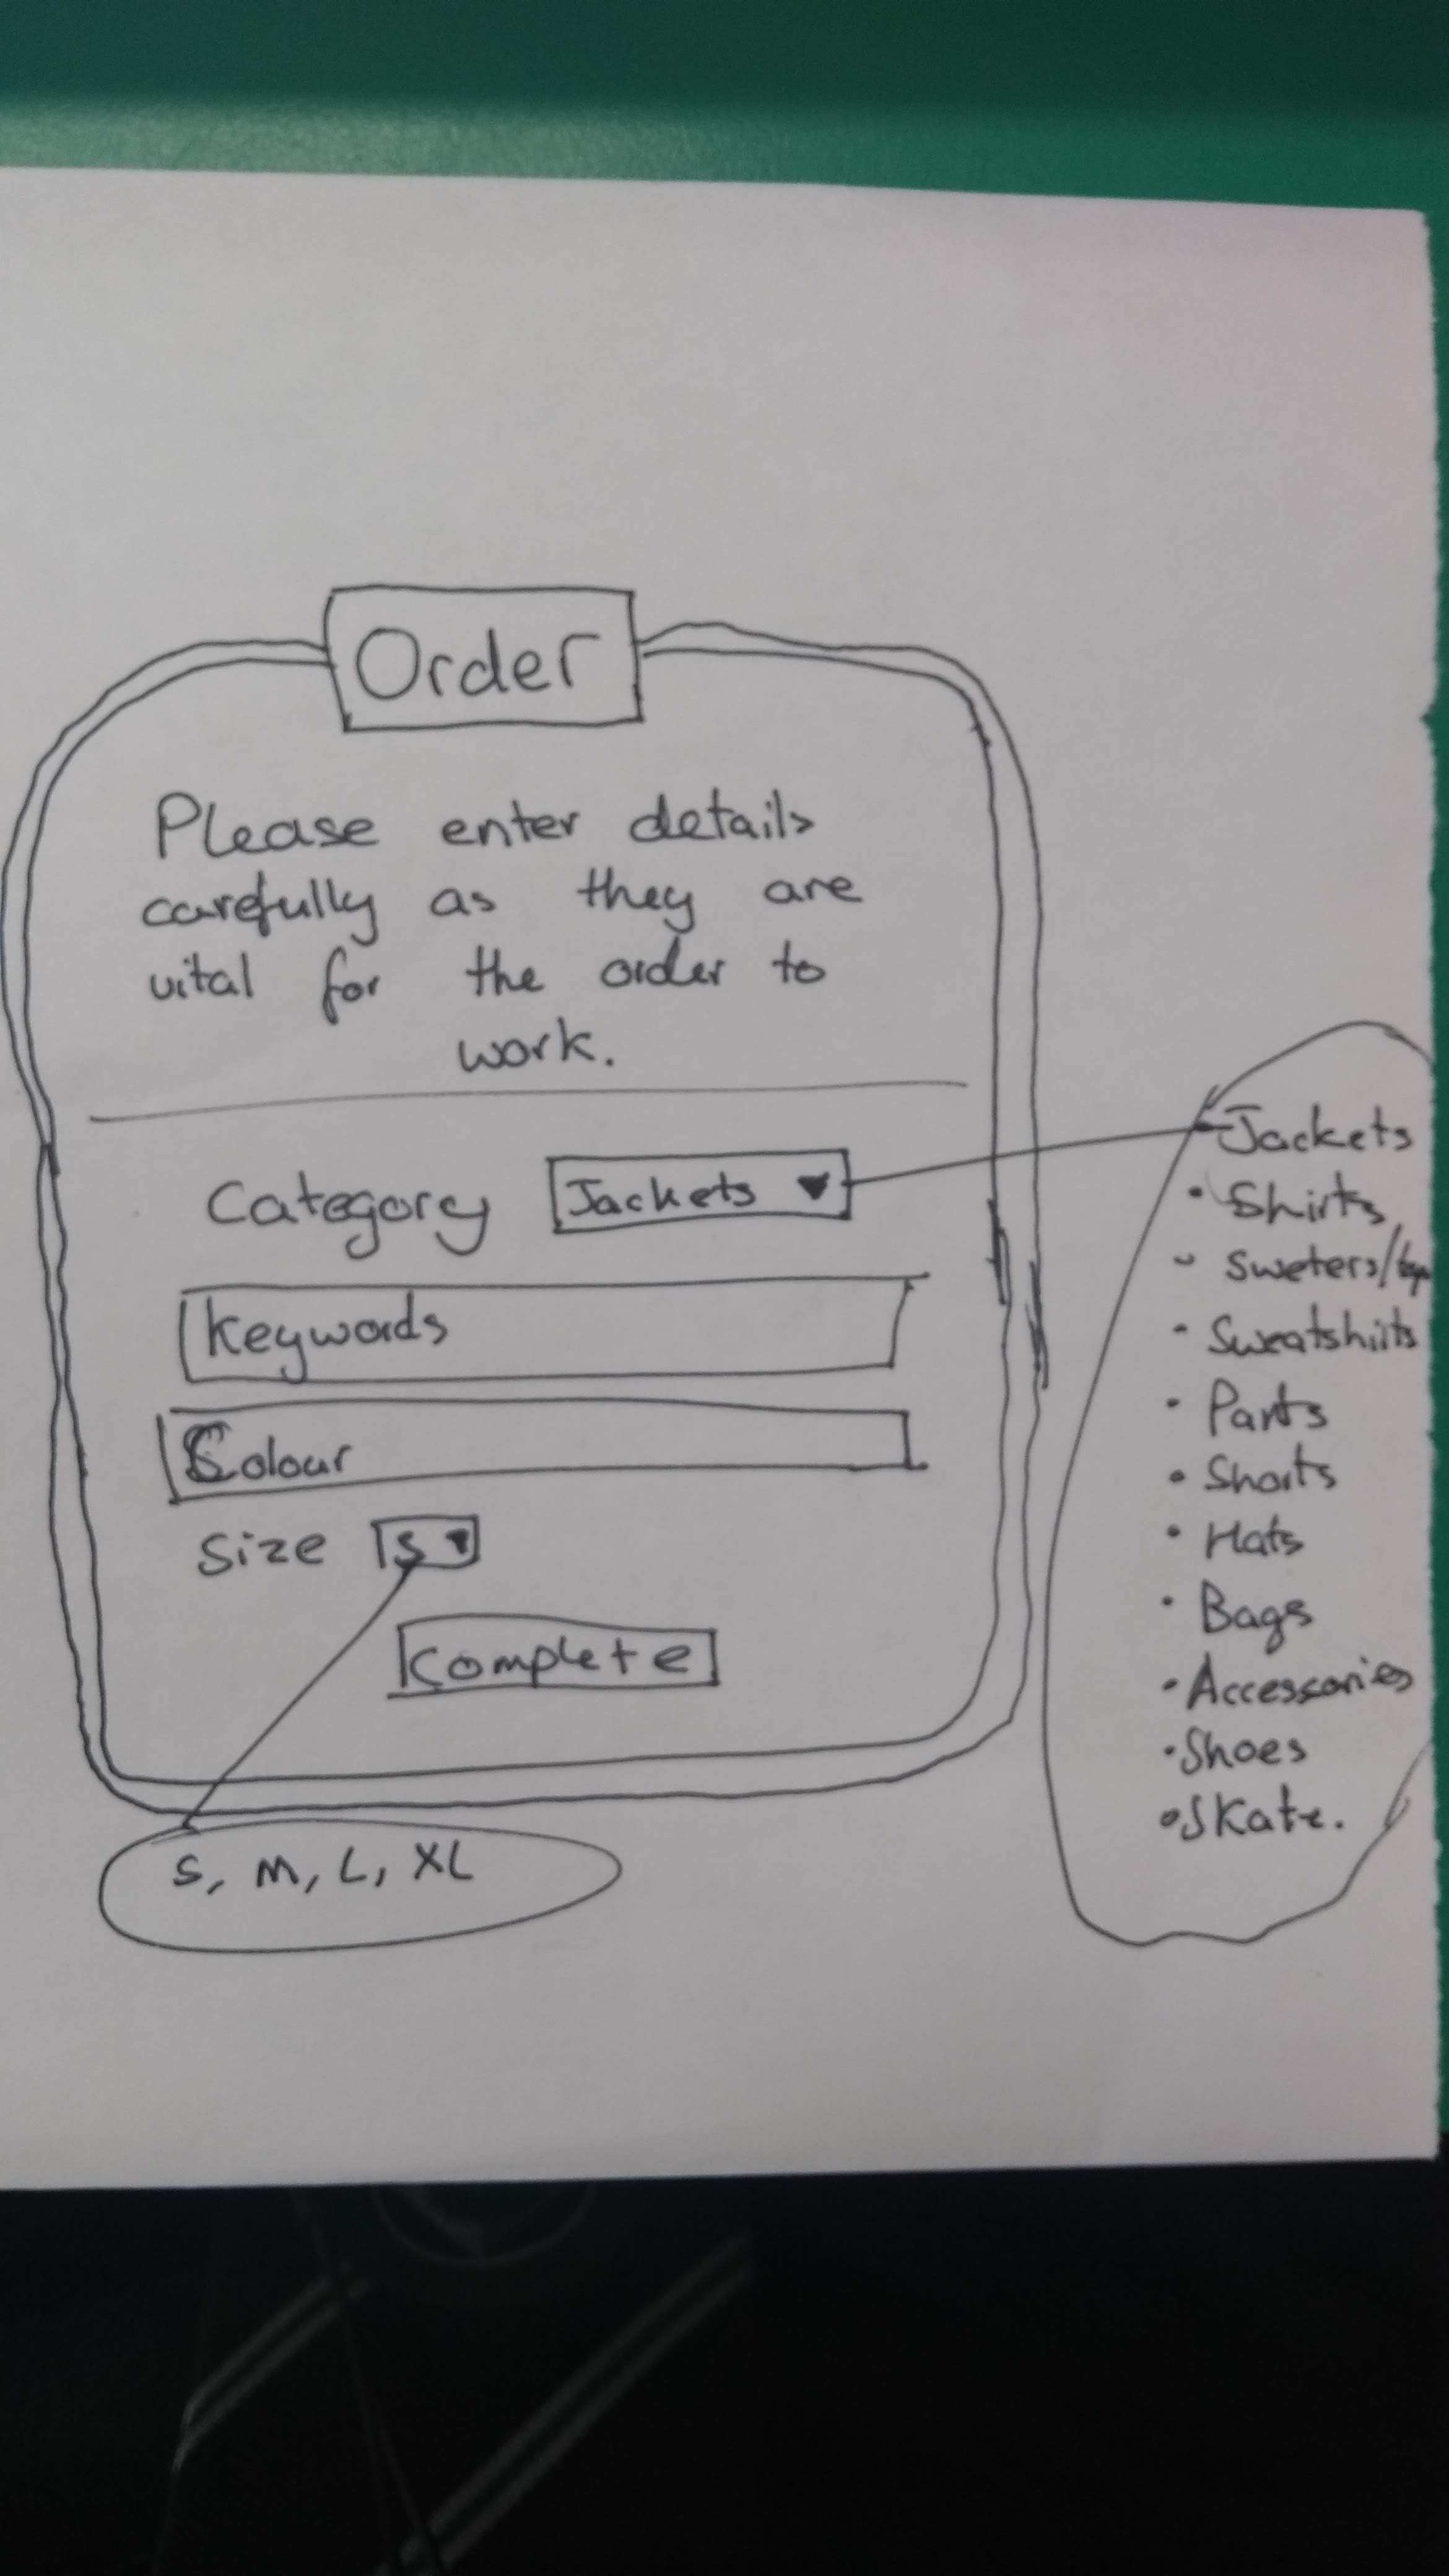 Order
Please enter details
carefully as they are
vital for the order to
work.
Category Jackets
Keywords
Colour
Size S
Complete
S, M, L, XL
Jackets
Shirts
Sweters/
Sweatshirts
Pants
Shorts
Hats
Bags
Accessories
Shoes
Skate.